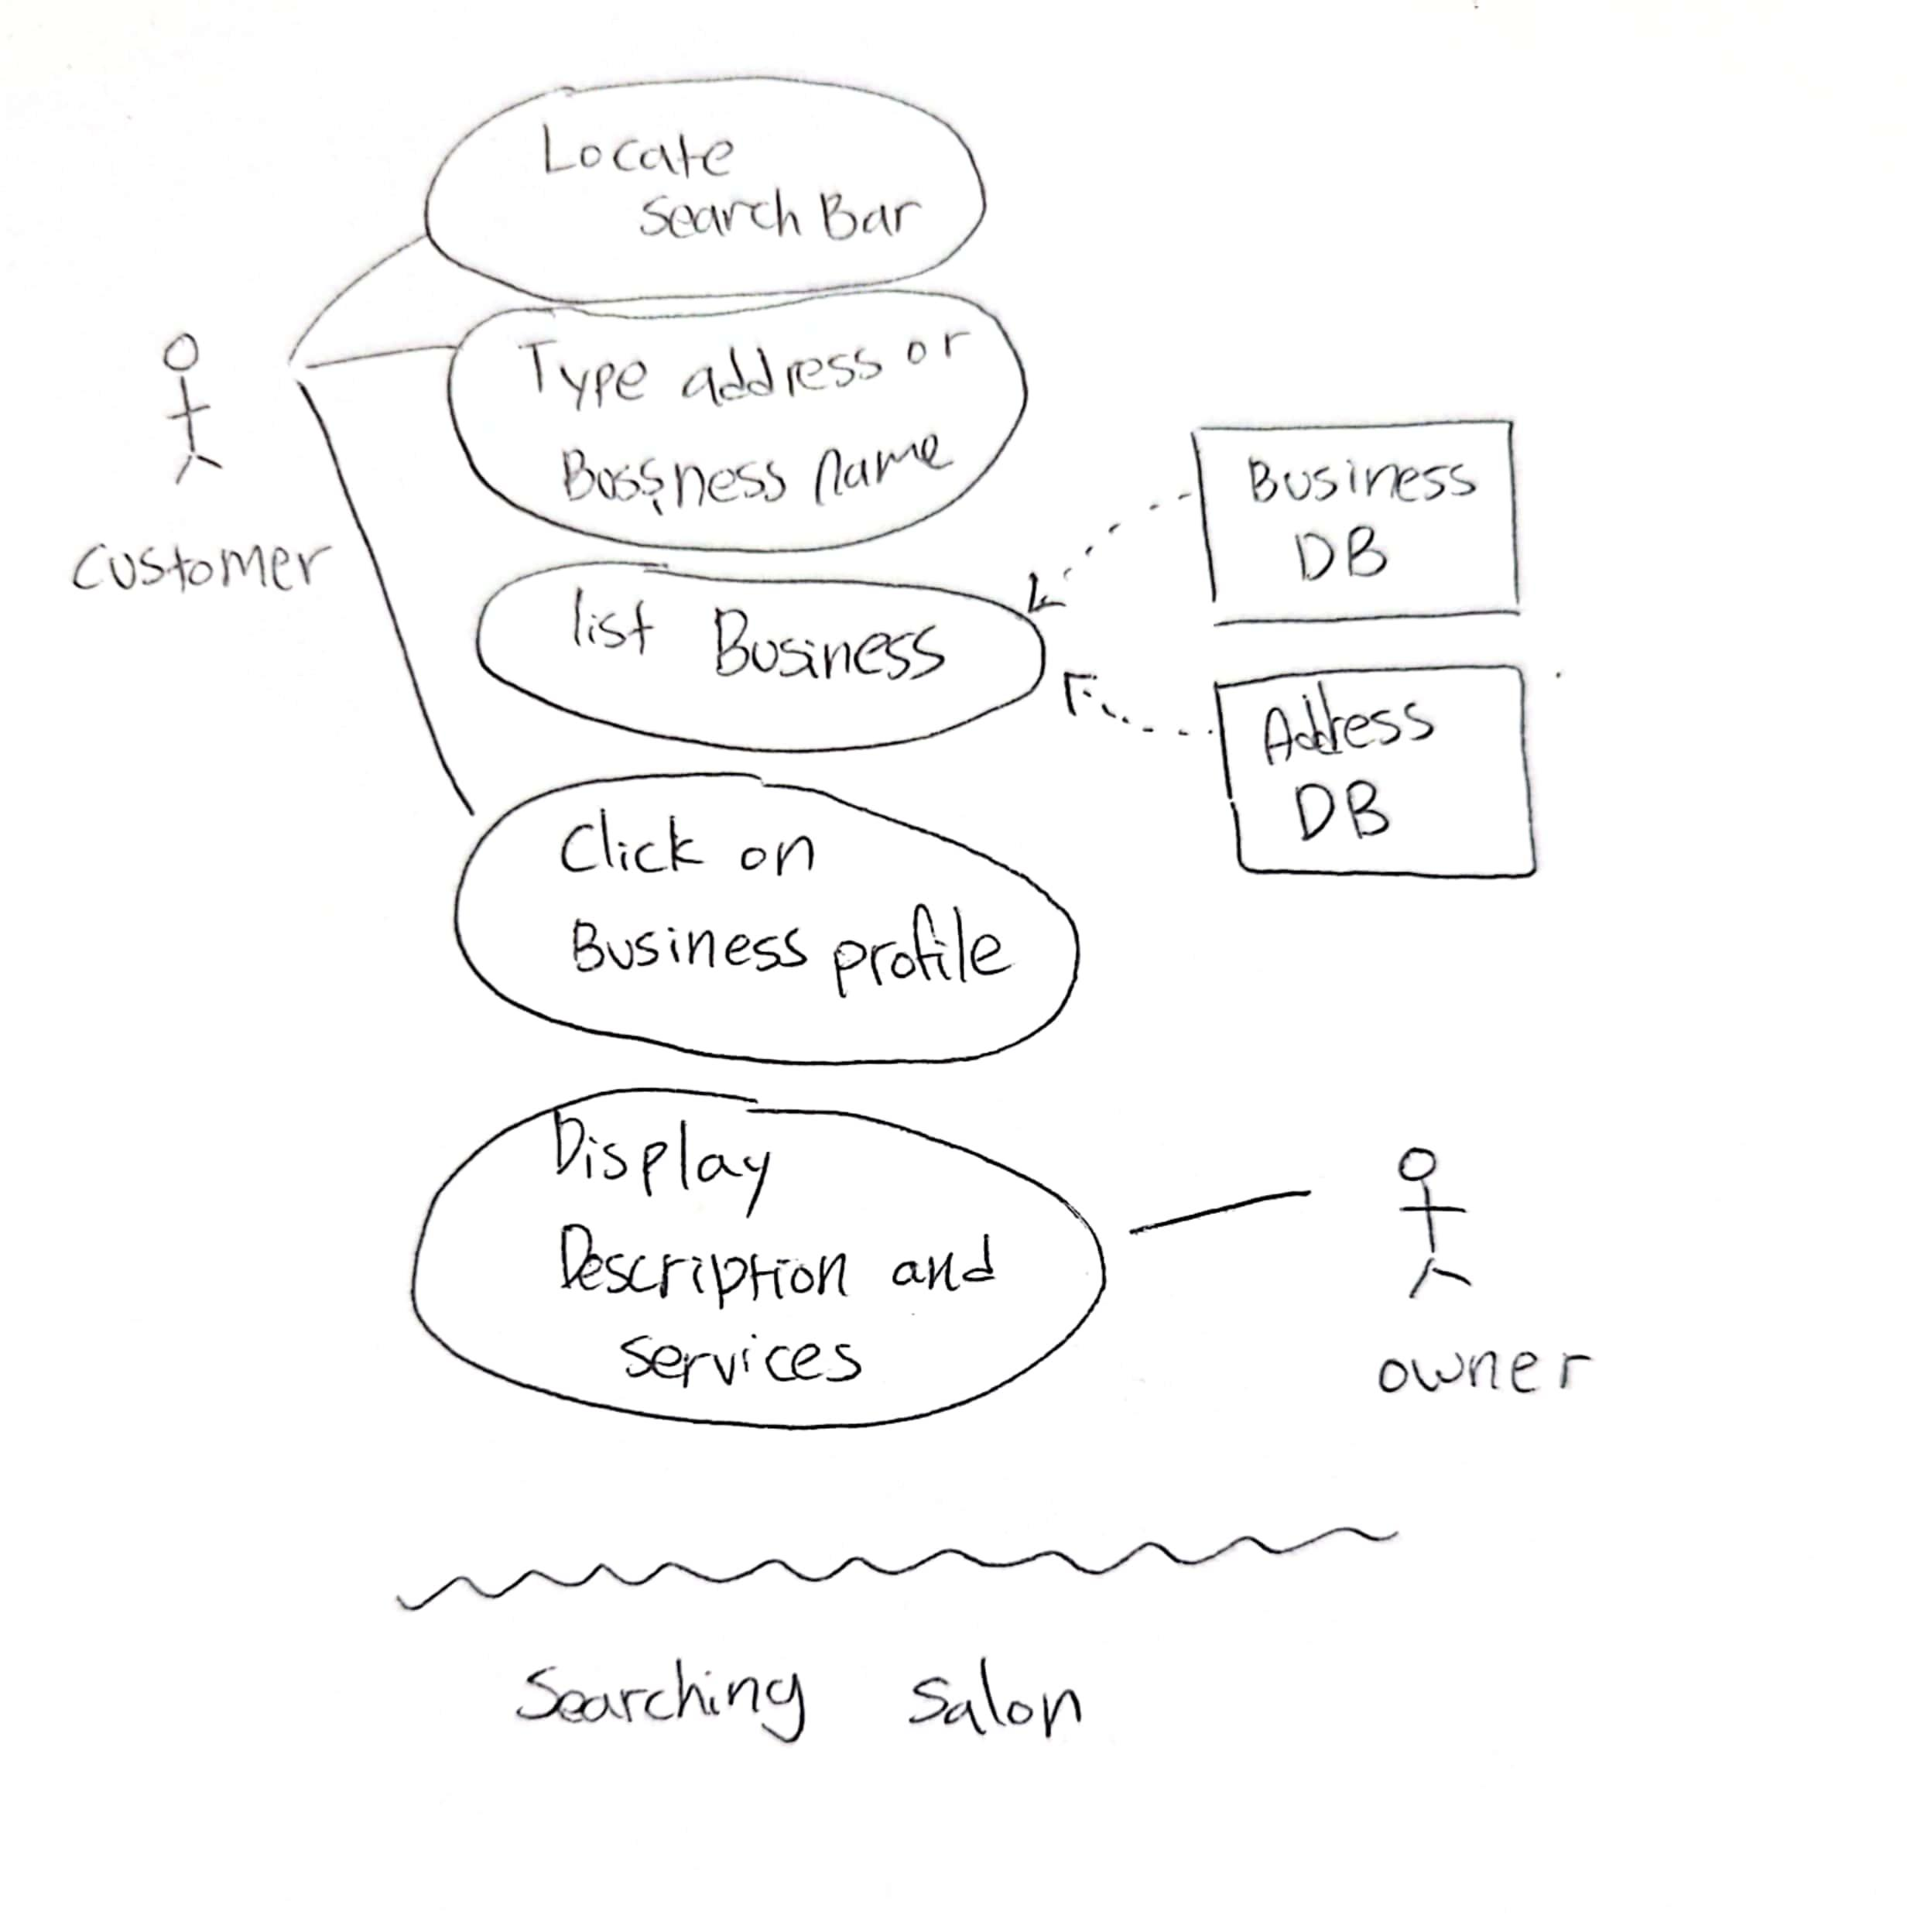 Locate
Search Bar
Type address or
Bussness name
customer
Business
DB
list Business
Address
DB
Click on
Business profile
Display
Description and
services
owner
Searching Salon